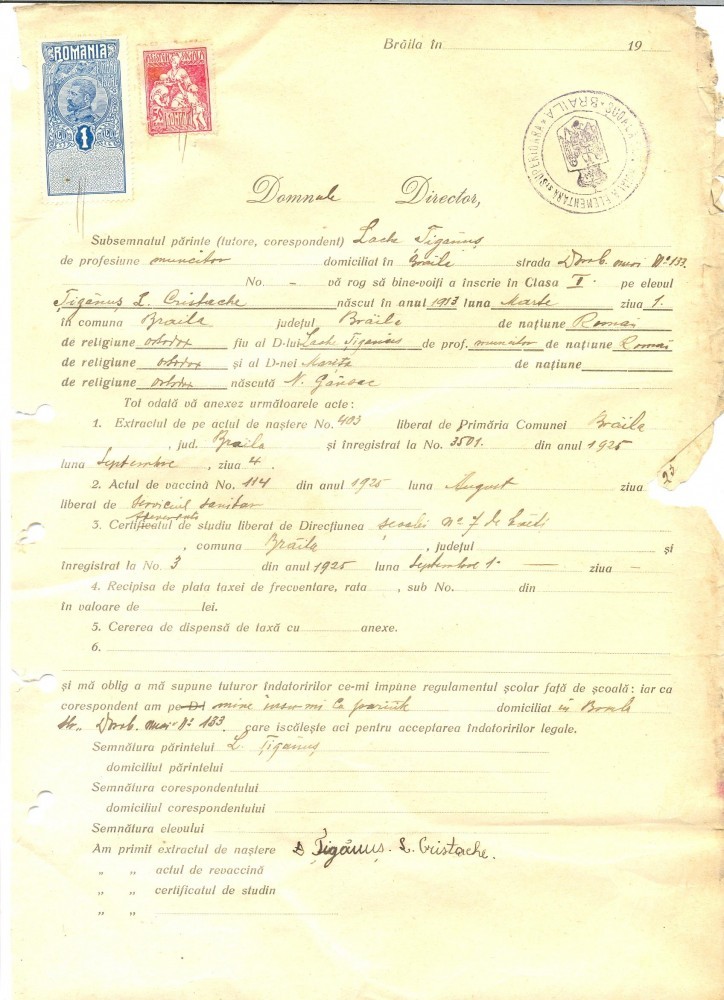 Brăila în 19
ROMANIA
1
50
BRAILA
Domnule Director,
Subsemnatul părinte (tutore, corespondent) Lache Țigănuș
de profesiune muncitor domiciliat în Brăila strada Dorob. mori Nº 133
No. - vă rog să bine-voiți a înscrie în Clasa I. pe elevul
Țigănuș L. Cristache născut în anul 1913 luna Marte ziua 1.
în comuna Braila județul Brăila de națiune Român
de religiune ortodox fiu al D-lui Lache Țigănus de prof. muncitor de națiune Român
de religiune ortodox și al D-nei de națiune
de religiune ortodox născută N.
Tot odată vă anexez următoarele acte:
1. Extractul de pe actul de naștere No. 403 liberat de Primăria Comunei Brăila
, jud. Braila și înregistrat la No. 3501. din anul 1925
luna Septembre, ziua 4.
2. Actul de vaccină No. 114 din anul 1925 luna August ziua
liberat de serviciul sanitar
3. Certificatul de studiu liberat de Direcțiunea școalei Nº 7 de băeti
, comuna Brăila, județul și
înregistrat la No. 3 din anul 1925 luna Septembre 1. — ziua —
4. Recipisa de plata taxei de frecventare, rata , sub No. din
în valoare de lei.
5. Cererea de dispensă de taxă cu anexe.
6.
și mă oblig a mă supune tuturor îndatoririlor ce-mi impune regulamentul școlar față de școală: iar ca
corespondent am pe D-l mine însu-mi ca domiciliat în
str. Dorob. mori Nº 133. care iscălește aci pentru acceptarea îndatoririlor legale.
Semnătura părintelui L. Țigănuș
domiciliul părintelui
Semnătura corespondentului
domiciliul corespondentului
Semnătura elevului
Am primit extractul de naștere Țigănuș. L. Cristache.
„ „ actul de revaccină
„ „ certificatul de studin
„ „